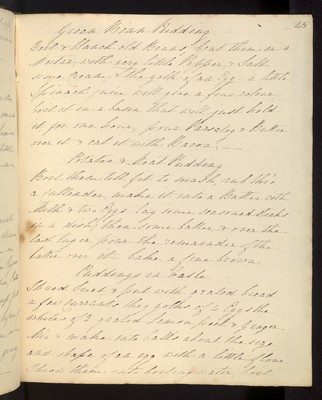 48
Green Bean Pudding
Boil & blanch old Beans beat them in a
Mortar, with very little Pepper & Salt
some Cream, & the yolk of an Egg a little
Spinach juice will give a fine colour
boil it in a bason that will just hold
it for one hour, pour Parsley & Butter
over it & eat it with Bacon.
Potatoe & Meat Pudding
Boil them till fit to mash, rub thro'
a cullender, make it into a Batter with
Milk & two Eggs lay some seasoned Steaks
in a dish, then some batter, & over the
last layer pour the remainder of the
batter over it bake a fine brown
Puddings in haste
Shred Suet & put with grated bread
a few currants, the yolks of 4 Eggs the
whites of 2 grated Lemon peel & Ginger
Mix & make into balls about the size
and shape of an egg with a little flour
throw them into boiling water, boil